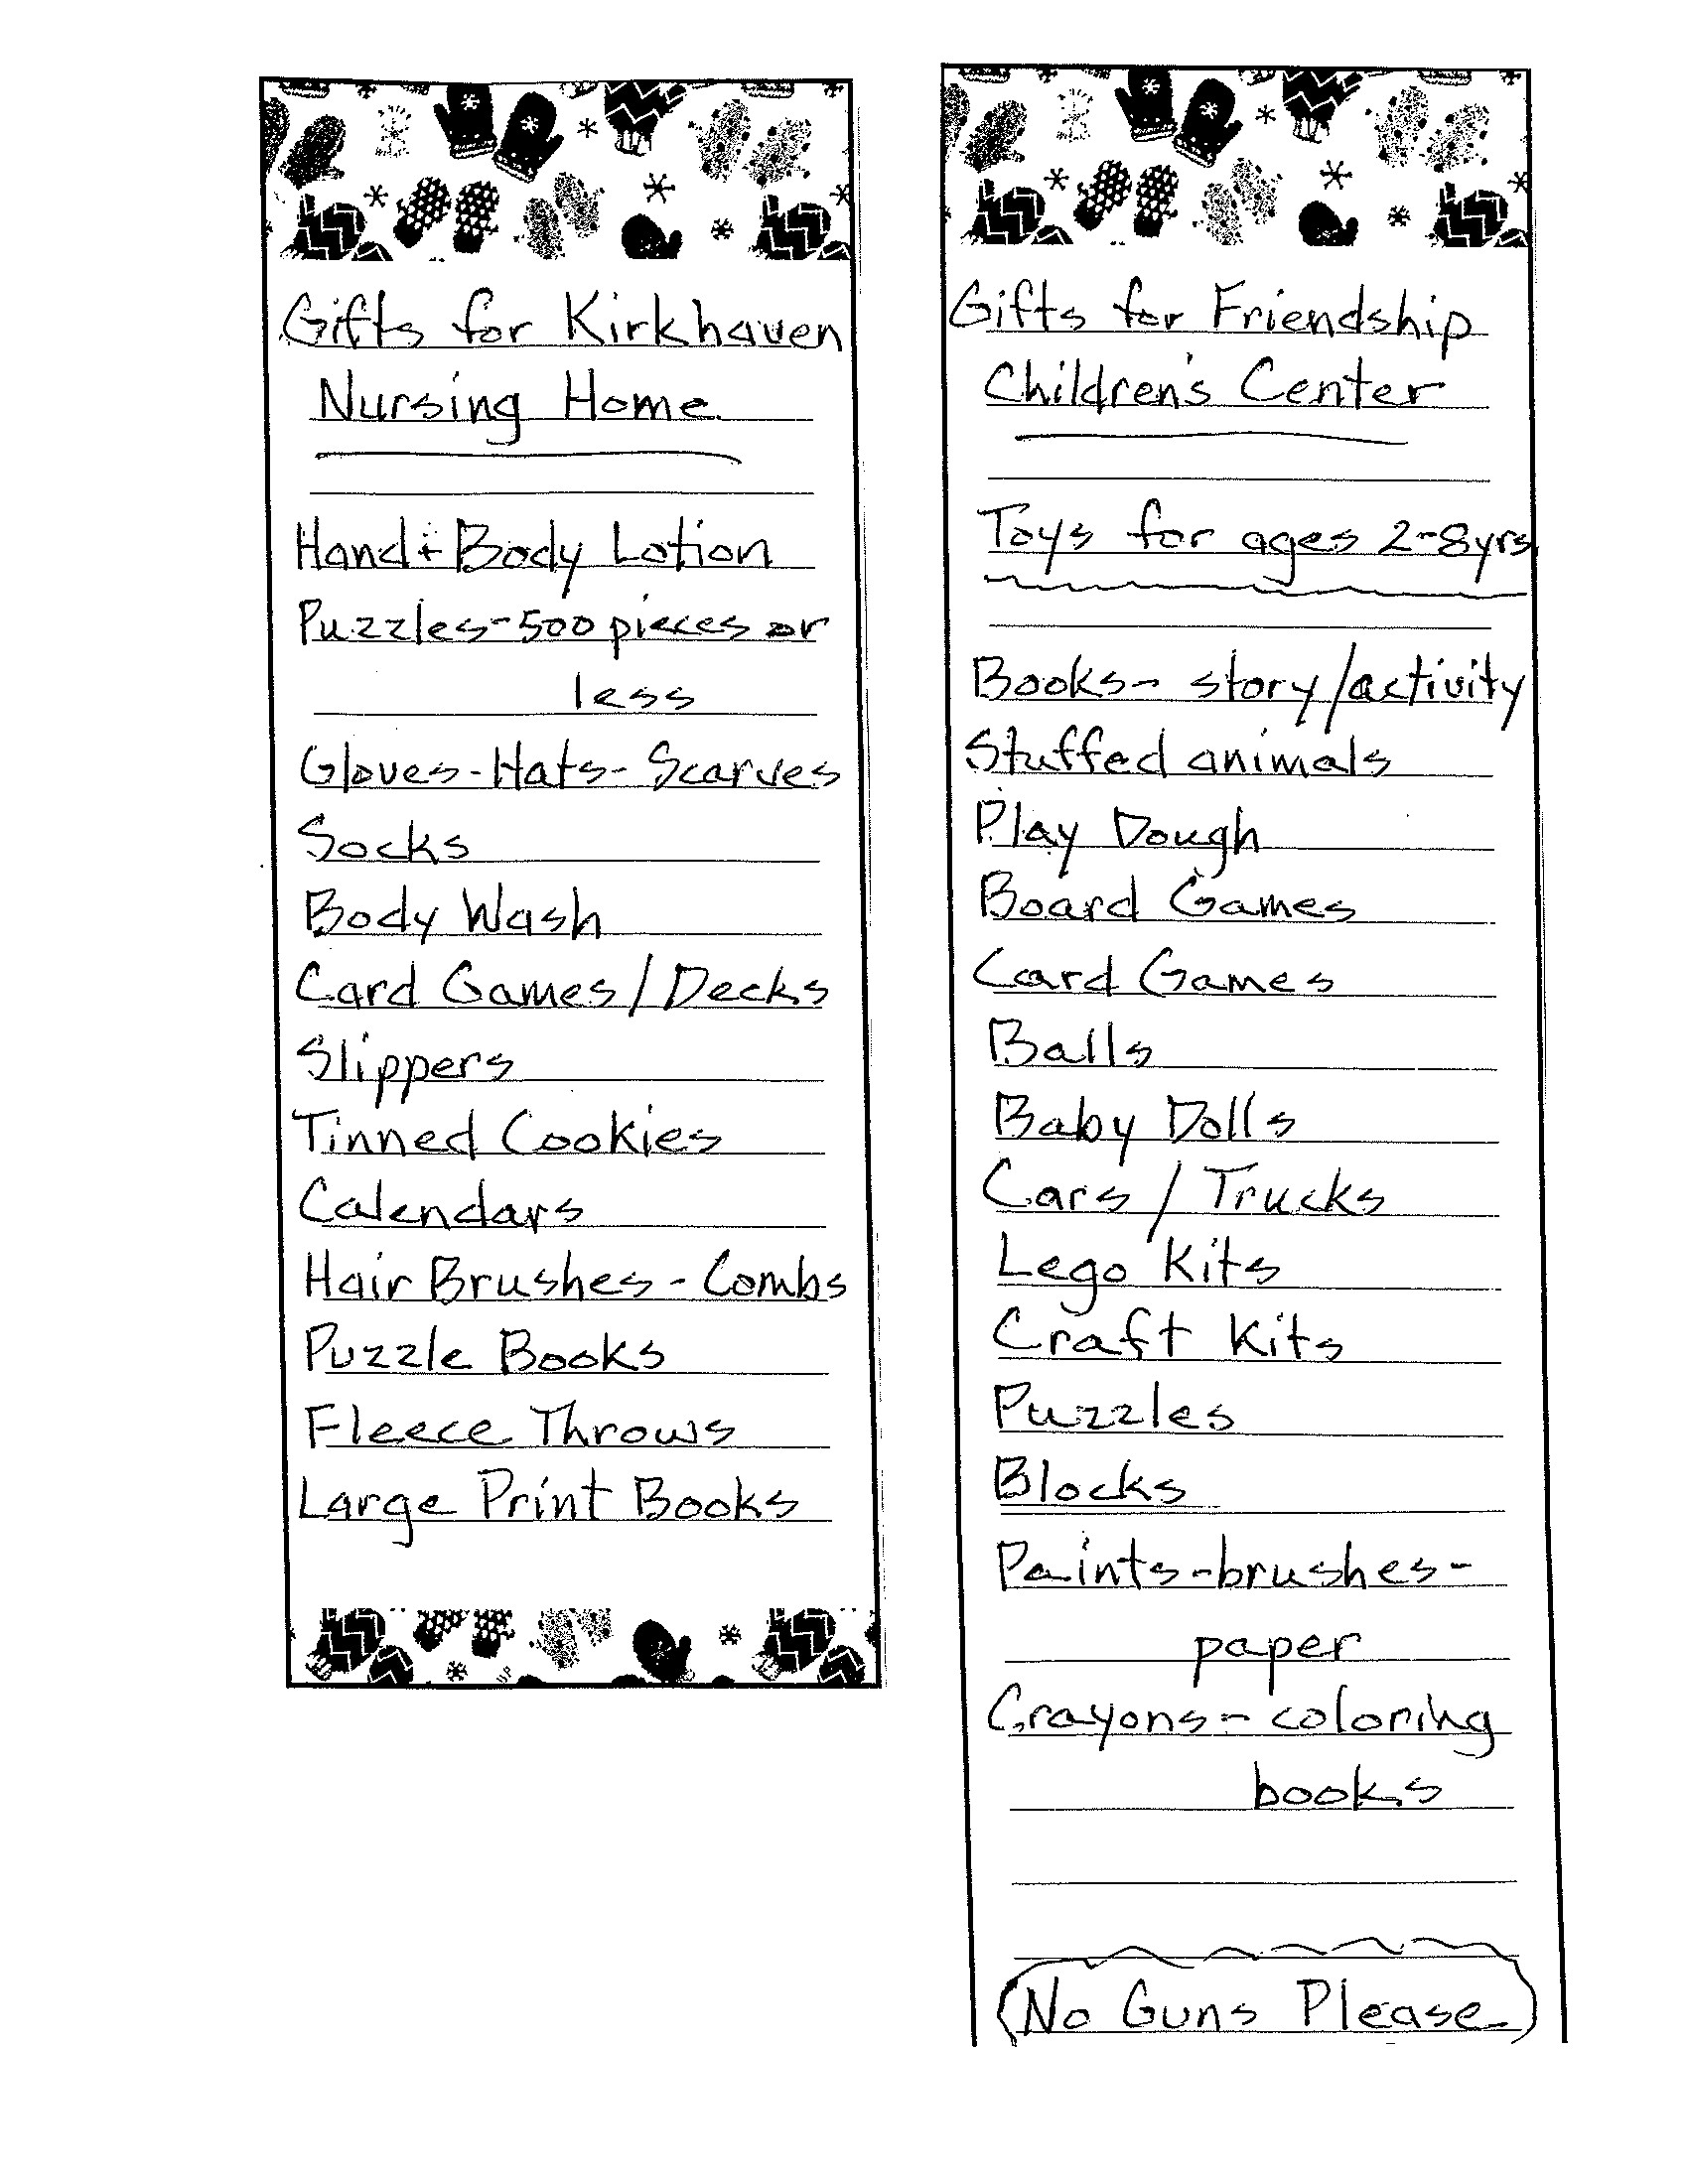 Gifts for Kirkhaven
Nursing Home
Hand + Body Lotion
Puzzles-500 pieces or
less
Gloves-Hats-Scarves
Socks
Body Wash
Card Games/Decks
Slippers
Tinned Cookies
Calendars
Hair Brushes-Combs
Puzzle Books
Fleece Throws
Large Print Books
Gifts for Friendship
Children's Center
Toys for ages 2-8yrs
Books- story/activity
Stuffed animals
Play Dough
Board Games
Card Games
Balls
Baby Dolls
Cars / Trucks
Lego Kits
Craft Kits
Puzzles
Blocks
Paints-brushes-
paper
Crayons- coloring
books
No Guns Please